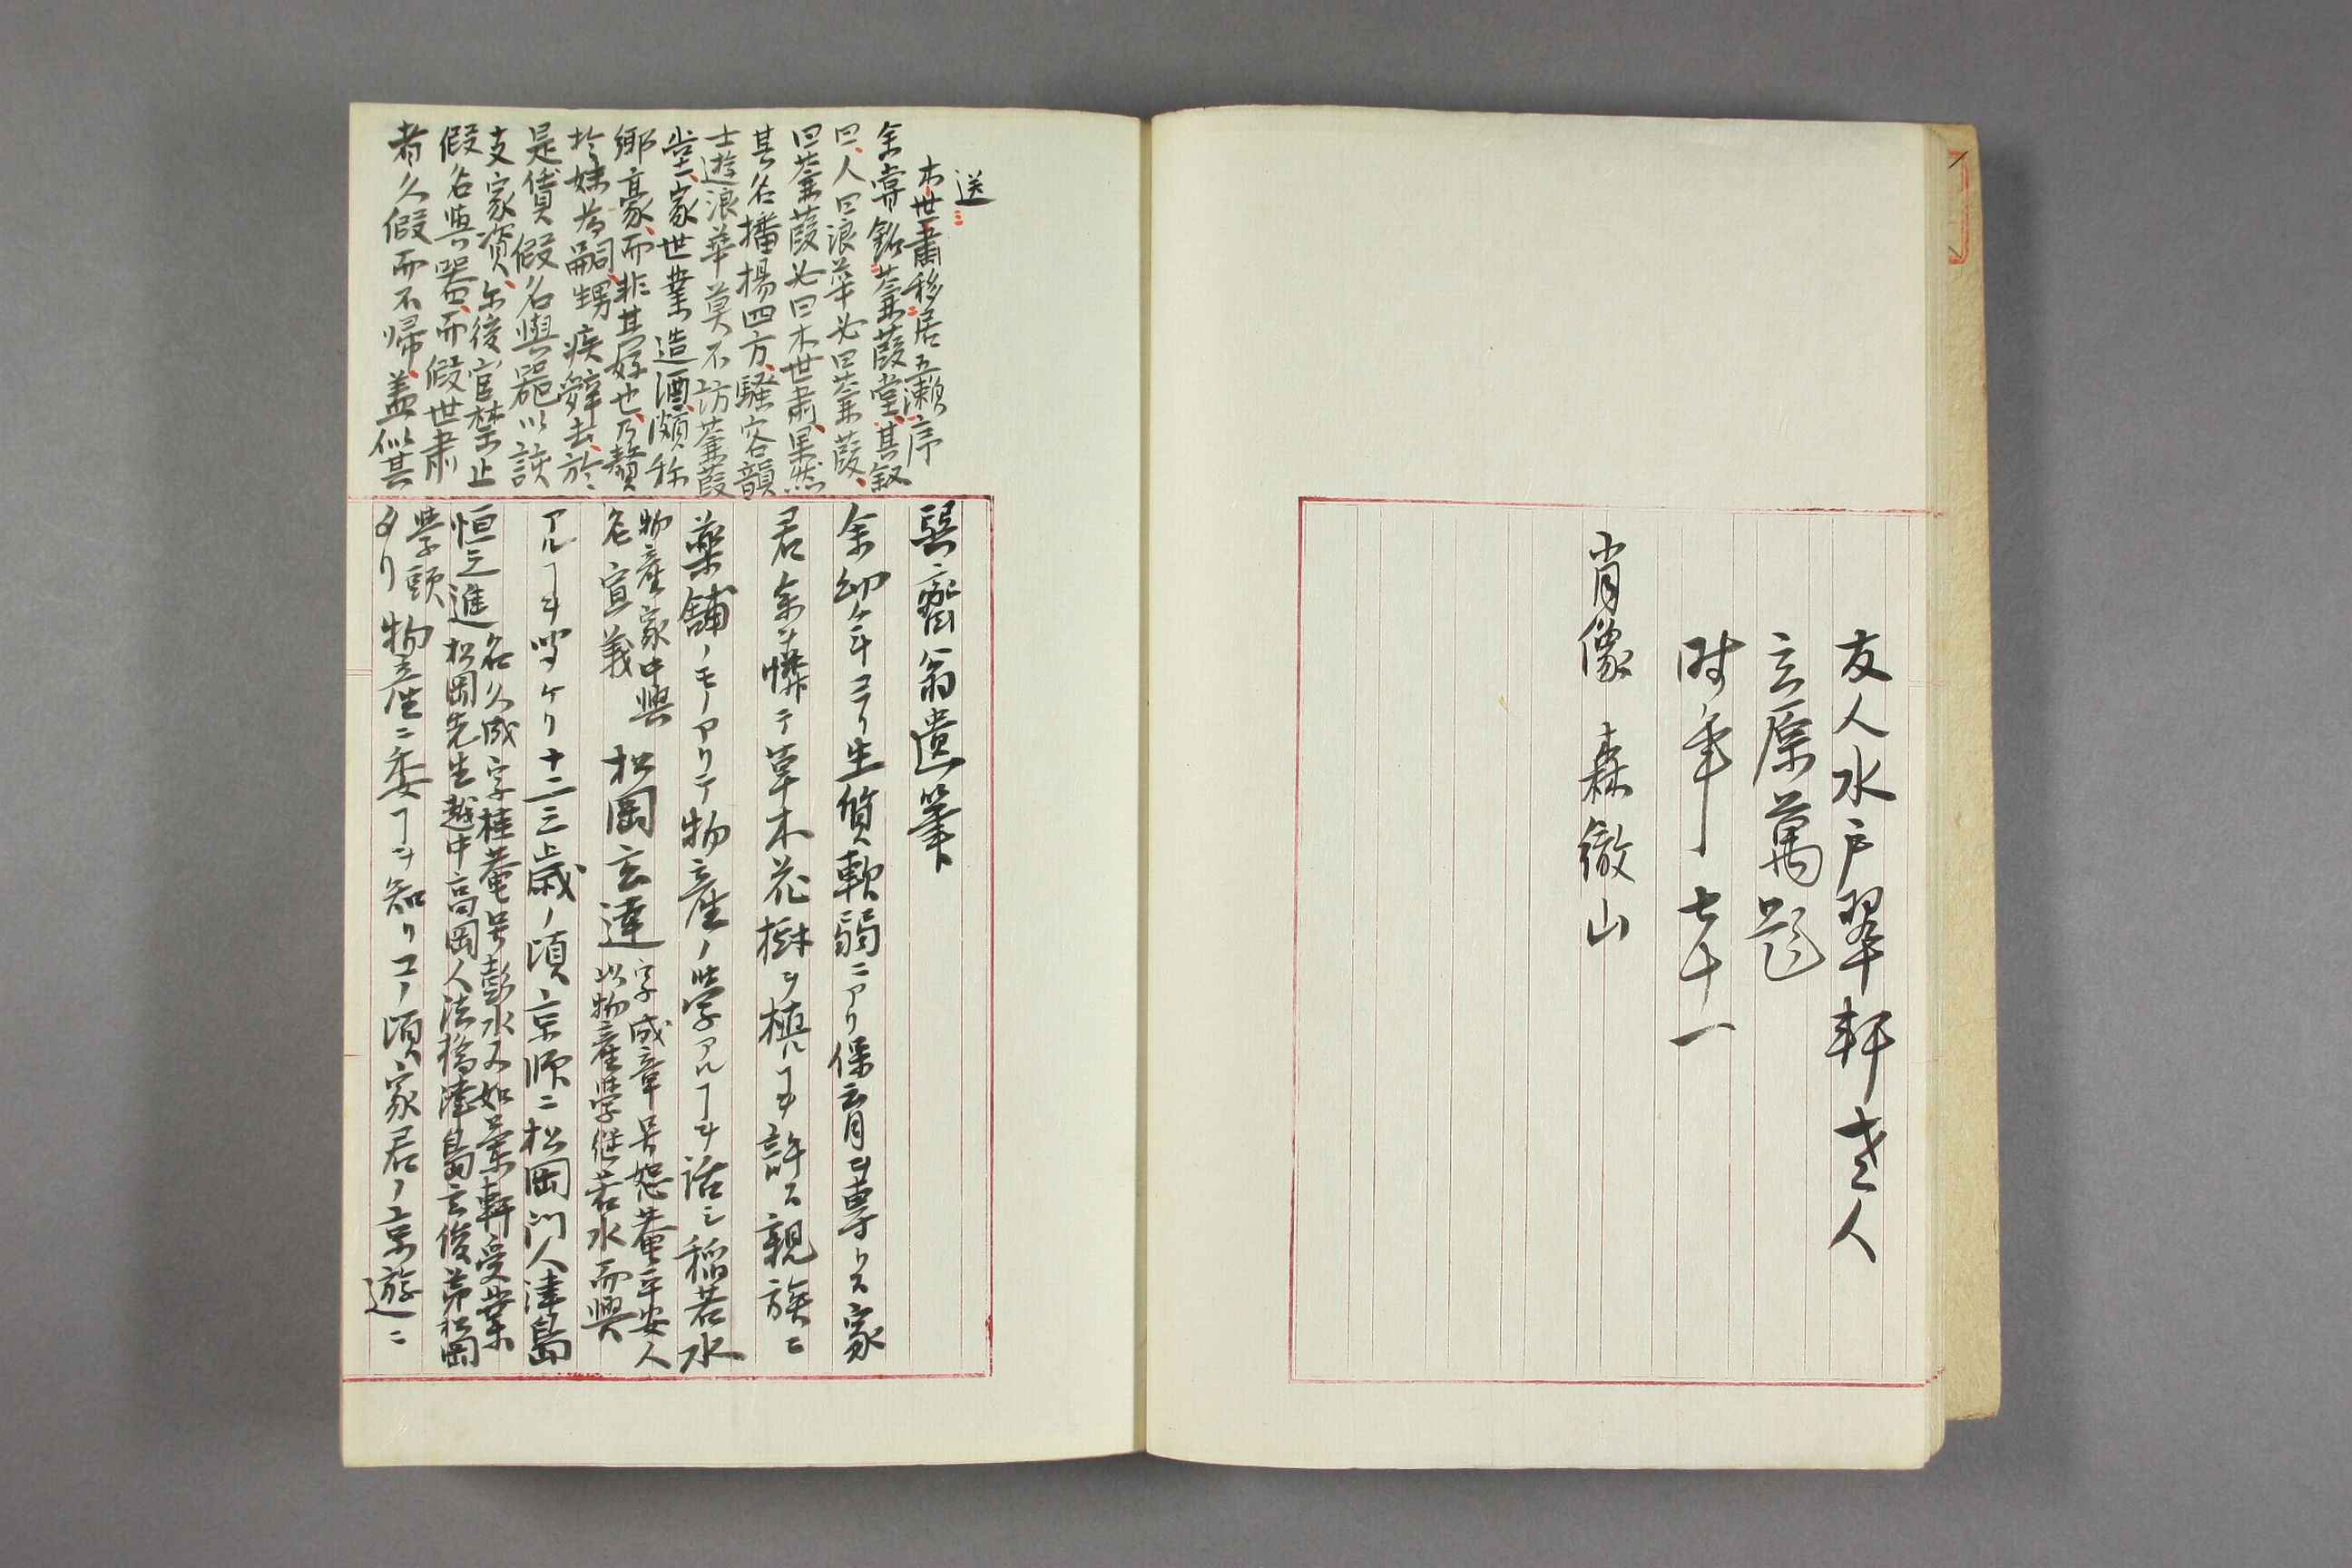 友人水戸翠軒老人
立原萬題
時年七十一
肖像 森徹山
送
木世肅移居五瀬序
余嘗銘蒹葭堂其叙
曰人曰浪華必曰蒹葭
曰蒹葭必曰木世肅果然
其名播揚四方騒客韻
士遊浪華莫不訪蒹葭
堂家世業造酒頗称
郷豪而非其好也乃贅
於妹為嗣甥疾辭去於
是貨假名與器以該
支家資尓後官禁止
假名與器而假世肅
者久假而不帰盖似其
巽齋翁遺筆
余幼ケヰコリ生質軟弱ニアリ保育ヲ専トス家
君余ヲ憐テ草木花樹ヲ植ルヿヲ許ス親族ニ
藥舖ノモノアリテ物産ノ学アルヿヲ話シ稲若水
物産家中興
名宣義
松岡玄達
字成章号恕菴平安人
以物産学継若水而興
アルヿヲ聞ケリ十二三歳ノ頃京師ニ松岡門人津島
恒之進
名久成字桂菴号彭水又如蘭軒受業
松岡先生越中高岡人法橋津島玄俊弟松岡
学頭
タリ
物産ニ委ヿヲ知リコノ頃家君ノ京遊ニ